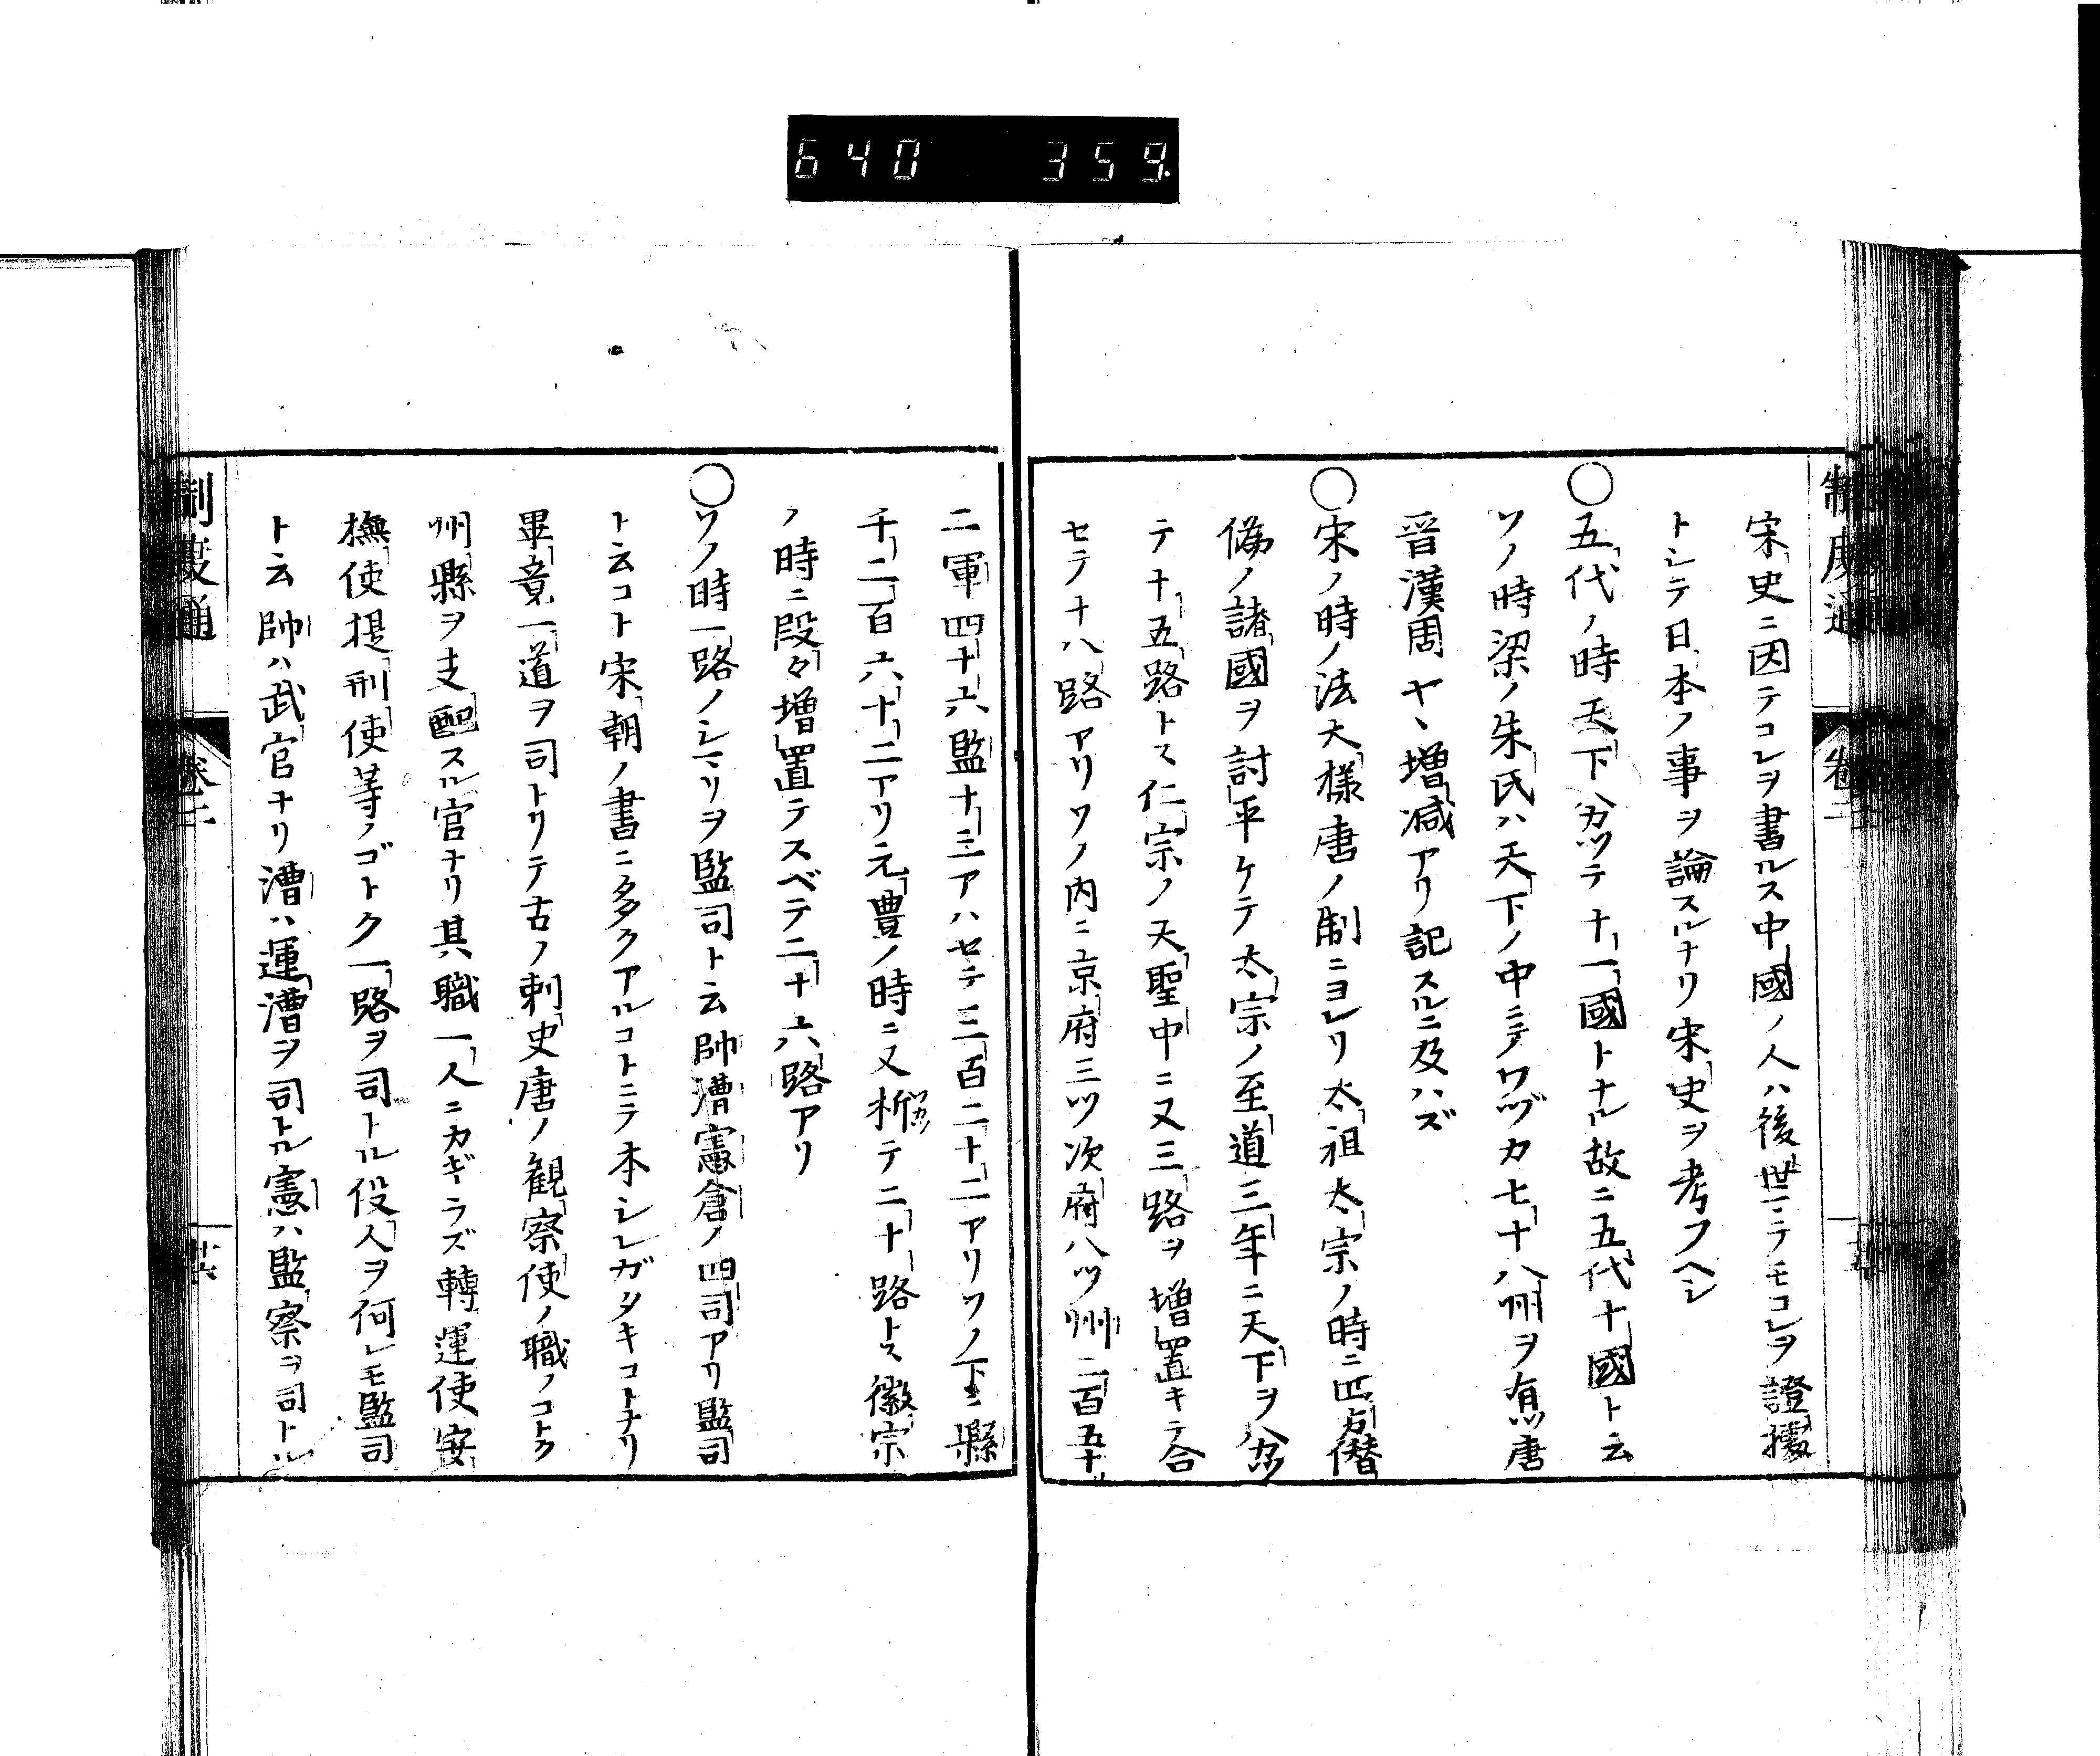 640 359.
制度通 卷二
宋史ニ因テコレヲ書ルス中國ノ人ハ後世ニテモコレヲ證據
トシテ日本ノ事ヲ論スルナリ宋史ヲ考フヘシ
○五代ノ時天下分ツテ十一國トナル故ニ五代十國ト云
ソノ時梁ノ朱氏ハ天下ノ中ニテワヅカ七十八州ヲ有ス唐
晉漢周ヤヽ増減アリ記スルニ及ハズ
○宋ノ時ノ法大樣唐ノ制ニヨレリ太祖太宗ノ時ニ四方僭
偽ノ諸國ヲ討平ケテ太宗ノ至道三年ニ天下ヲ分ツ
テ十五路トス仁宗ノ天聖中ニ又三路ヲ増置キテ合
セテ十八路アリソノ内ニ京府三ツ次府八ツ州二百五十
二軍四十六監十三アハセテ三百二十二アリソノ下ニ縣
千二百六十二アリ元豊ノ時ニ又析テ二十路トス徽宗
ノ時ニ段々増置テスベテ二十六路アリ
○ソノ時一路ノシマリヲ監司ト云帥漕憲倉ノ四司アリ監司
ト云コト宋朝ノ書ニ多クアルコトニテ本シレガタキコトナリ
畢竟一道ヲ司トリテ古ノ刺史唐ノ観察使ノ職ノコトク
州縣ヲ支配スル官ナリ其職一人ニカギラズ轉運使安
撫使提刑使等ノゴトク一路ヲ司トル役人ヲ何レモ監司
ト云帥ハ武官ナリ漕ハ運漕ヲ司トル憲ハ監察ヲ司トル
制度通 卷二 廿六